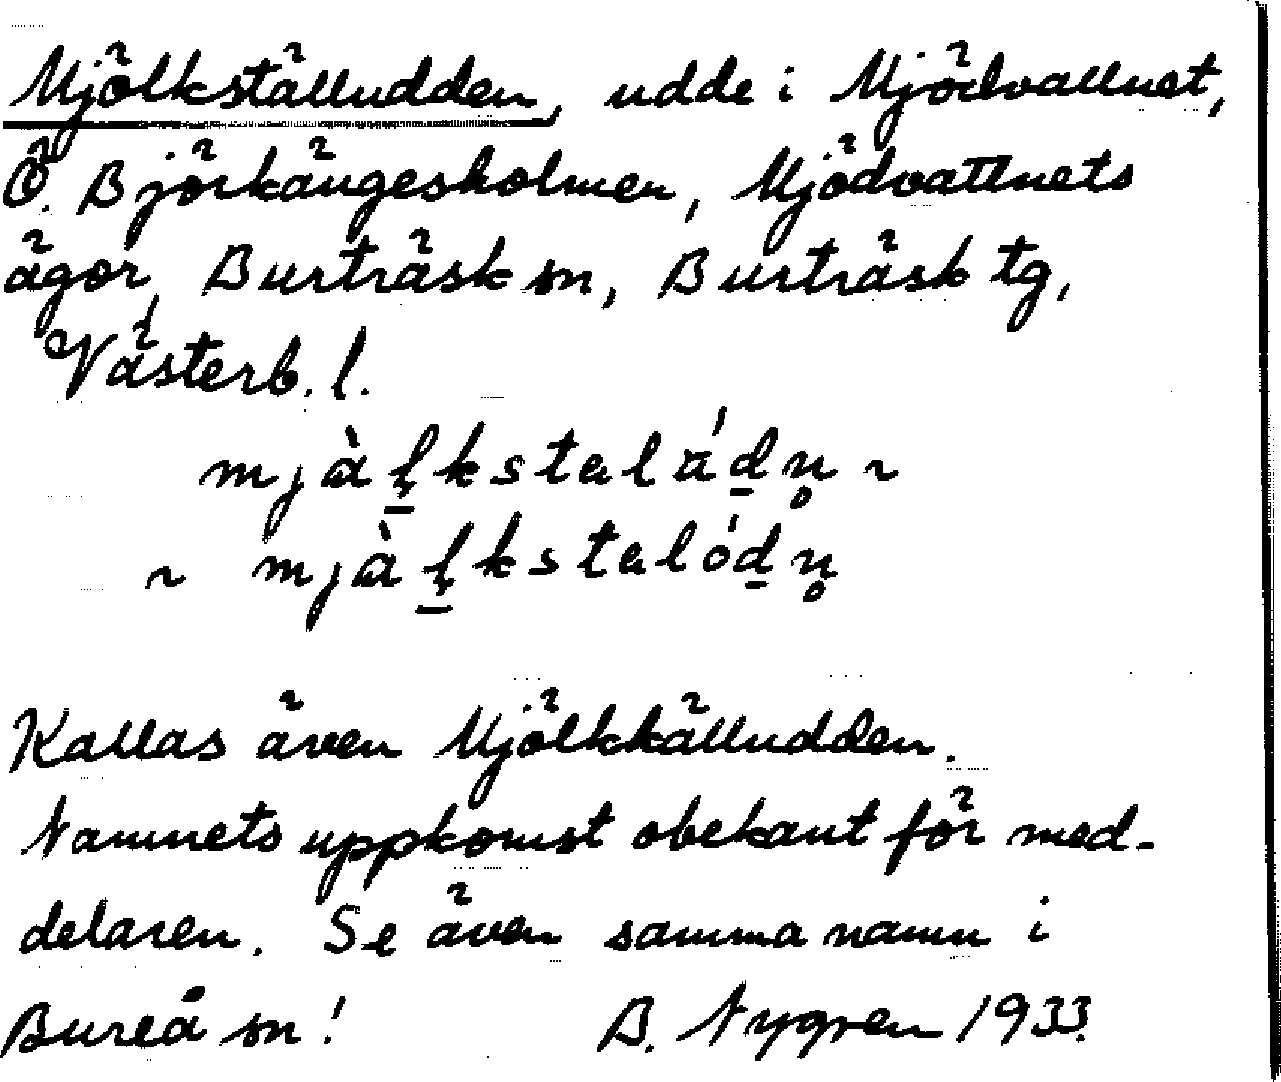 Mjölkställudden, udde i Mjödvattnet,
Ö. Björkängesholmen, Mjödvattnets
ägor, Burträsk sn, Burträsk tg,
Västerb. l.
mjàl̥kstaládn̥ ~
~ mjàl̥kstalódn̥
Kallas även Mjölkkälludden.
Namnets uppkomst obekant för med-
delaren. Se även samma namn i
Bureå sn! B. Nygren 1933.